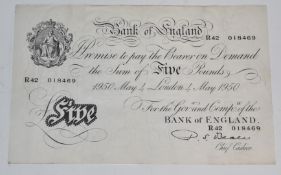 Bank of England
R42 018469
Promise to pay the Bearer on Demand
the Sum of Five Pounds
1950 May 4 London 4 May 1950
For the Gov.r and Comp.a of the
BANK OF ENGLAND.
Five
R42 018469
P. S. Beale
Chief Cashier.